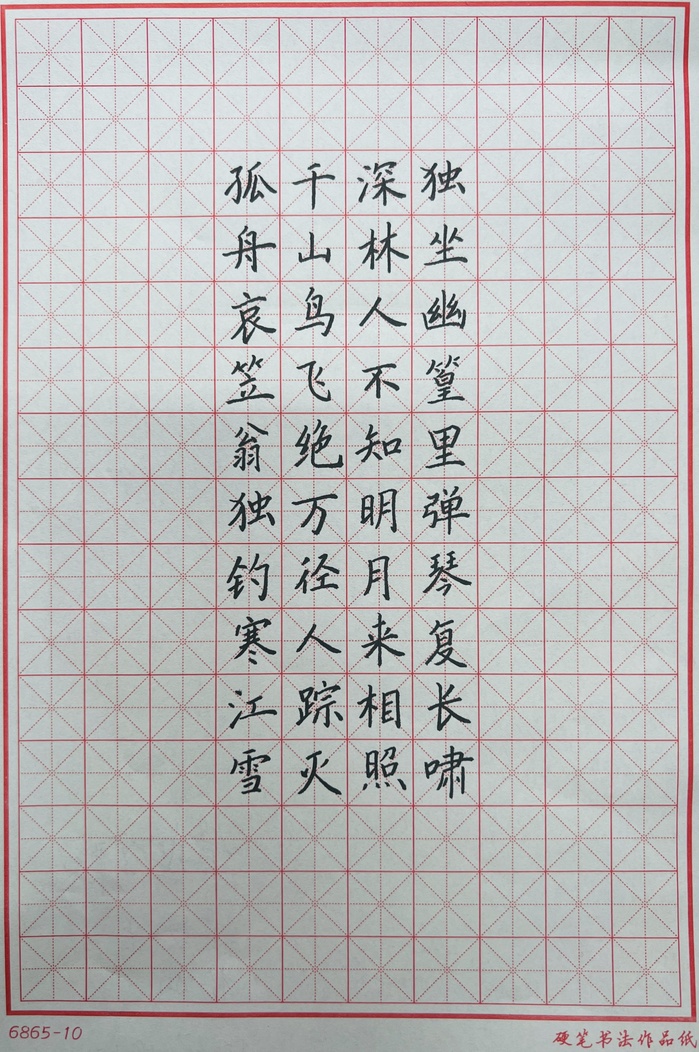 独坐幽篁里弹琴复长啸
深林人不知明月来相照
千山鸟飞绝万径人踪灭
孤舟哀笠翁独钓寒江雪
6865-10
硬笔书法作品纸